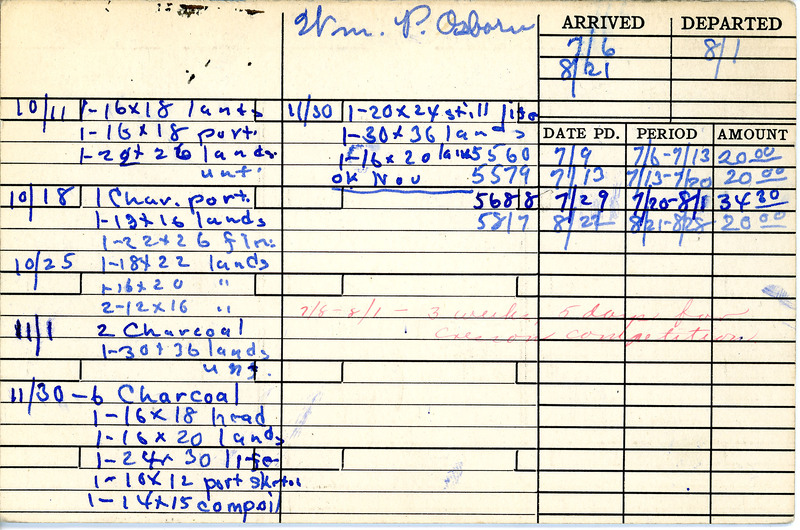 Wm. P. Osborn
ARRIVED DEPARTED
7/6 8/1
8/21
10/11 1-16x18 lands
1-16x18 port.
1-20x26 lands.
unf.
10/18 1 Char. port.
1-13x16 lands
1-22x26 fin.
10/25 1-18x22 lands
1-16x20 "
2-12x16 "
11/1 2 Charcoal
1-30x36 lands
unf.
11/30-6 Charcoal
1-16x18 head
1-16x20 lands
1-24x30 life
1-10x12 port sketch
1-14x15 compo
11/30 1-20x24 still life
1-30x36 lands
1-16x20 lands
OK Nov
DATE PD. PERIOD AMOUNT
5560 7/9 7/6-7/13 20.00
5579 7/13 7/13-7/20 20.00
5688 7/29 7/20-8/1 34 30
5817 8/22 8/21-8/28 20 00
7/8-8/1 - 3 weeks, 5 days for
Cresson competition